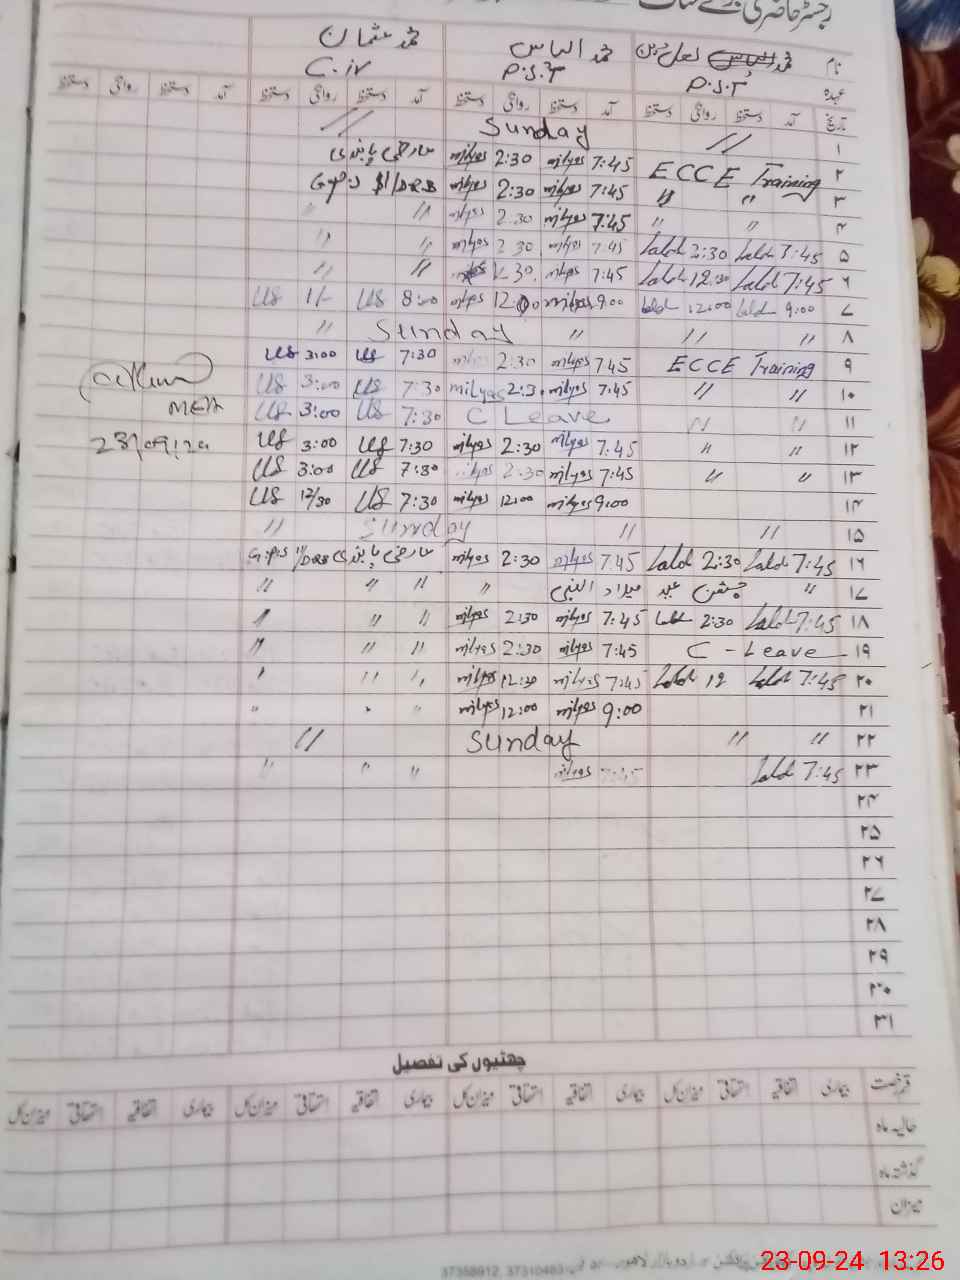 رجسٹر حاضری
نام محمد لعل حسین محمد الیاس محمد عثمان
عہدہ P.S.T P.S.T C.IV
تاریخ آمد دستخط روانگی دستخط آمد دستخط روانگی دستخط آمد دستخط روانگی دستخط آمد دستخط روانگی دستخط
۱ // Sunday //
۲ ECCE Training 7:45 milyas 2:30 milyas عارضی پابندی
۳ // // 7:45 milyas 2:30 milyas
۴ // // 7:45 milyas 2:30 milyas // //
۵ 7:45 Lald 2:30 Lald 7:45 milyas 2:30 milyas // //
۶ 7:45 Lald 12:30 Lald 7:45 milyas // //
۷ 9:00 Lald 12:00 Lald 9:00 milyas 12:00 milyas 8:00 US 1/- US
۸ // // // Sunday //
۹ ECCE Training 7:45 milyas 2:30 milyas 7:30 US 3:00 US
۱۰ // // 7:45 milyas 2:3 milyas 7:30 US 3:00 US
۱۱ // // C Leave 7:30 US 3:00 US
۱۲ // // 7:45 milyas 2:30 milyas 7:30 US 3:00 US
۱۳ // // 7:45 milyas 2:30 milyas 7:30 US 3:00 US
۱۴ 9:00 milyas 12:00 milyas 7:30 US 12/30 US
۱۵ // // Sunday //
۱۶ 7:45 Lald 2:30 Lald 7:45 milyas 2:30 milyas عارضی پابندی
۱۷ // جشن عید میلاد النبی // // // //
۱۸ 7:45 Lald 2:30 Lald 7:45 milyas 2:30 milyas // // //
۱۹ C - Leave 7:45 milyas 2:30 milyas // // //
۲۰ 7:45 Lald 12 Lald 7:45 milyas 12:30 milyas // //
۲۱ 9:00 milyas 12:00 milyas //
۲۲ // // Sunday //
۲۳ 7:45 Lald 7:45 milyas // // //
۲۴
۲۵
۲۶
۲۷
۲۸
۲۹
۳۰
۳۱
MEA
23/09/24
چھٹیوں کی تفصیل
قسم رخصت بیماری اتفاقیہ استحقاقی میزان کل بیماری اتفاقیہ استحقاقی میزان کل بیماری اتفاقیہ استحقاقی میزان کل بیماری اتفاقیہ استحقاقی میزان کل
حالیہ ماہ
گذشتہ ماہ
میزان
37358912, 37310463
23-09-24 13:26